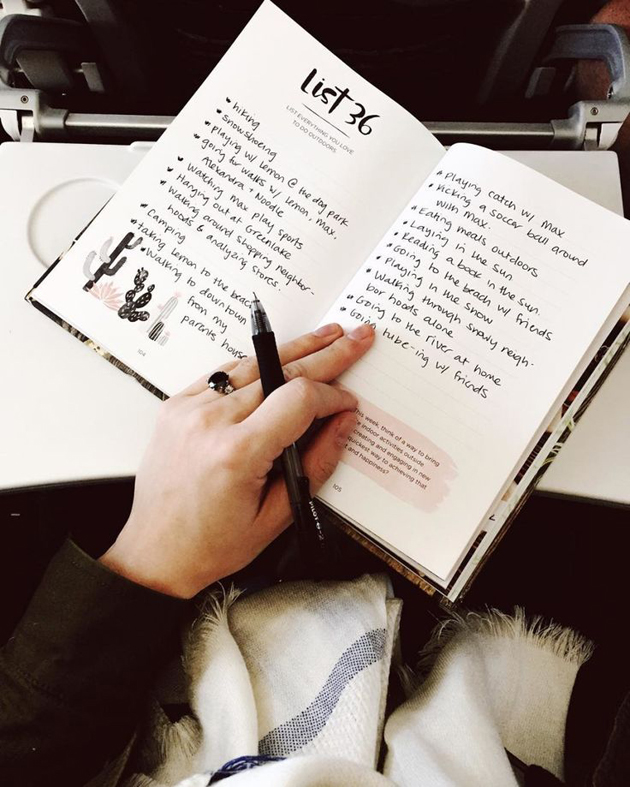 List 36
LIST EVERYTHING YOU LOVE
TO DO OUTDOORS:
hiking
snowshoeing
playing w/ Lemon @ the dog park
going for walks w/ Lemon, Max,
Alexandra & Noodle
Watching Max play sports
Hanging out at Greenlake
Walking around shopping neighbor-
hoods & analyzing stores.
Camping
Taking Lemon to the beach
Walking to downtown
from my
parents house
104
Playing catch w/ Max
Kicking a soccer ball around
with Max.
Eating meals outdoors
Laying in the sun
Reading a book in the sun.
Going to the beach w/ friends
Playing in the snow
Walking through snowy neigh-
bor hoods alone
Going to the river at home
Going tube-ing w/ friends
This week, think of a way to bring
indoor activities outside.
creating and engaging in new
quickest way to achieving that
and happiness?
105
PILOT G-2